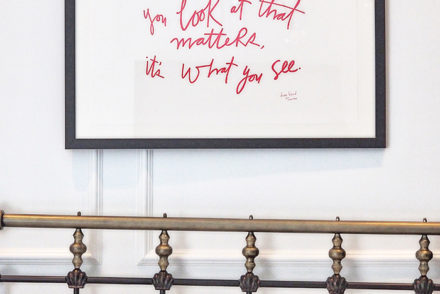 you look at that
matters,
it's what you see.